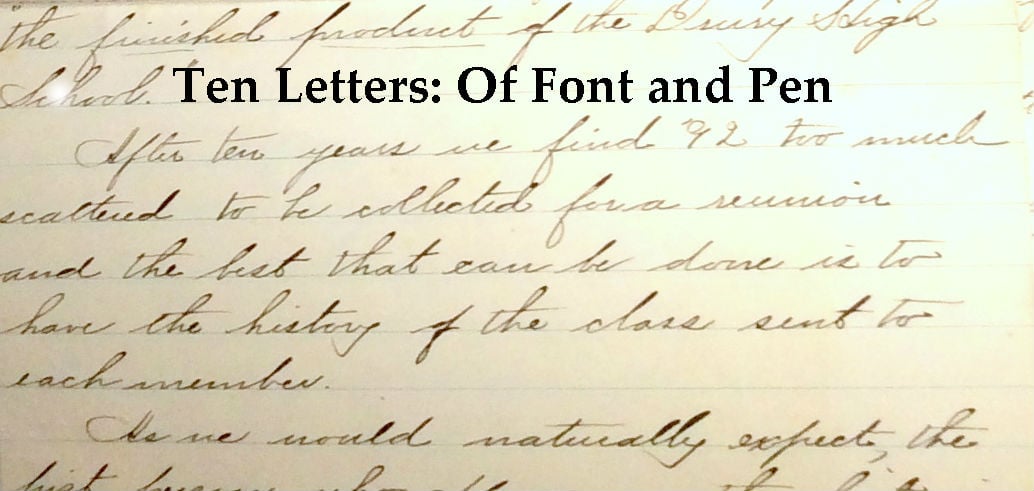 the finished product of the Drury High
School."
Ten Letters: Of Font and Pen
After ten years we find '92 too much
scattered to be collected for a reunion
and the best that can be done is to
have the history of the class sent to
each member.
As we would naturally expect, the
first